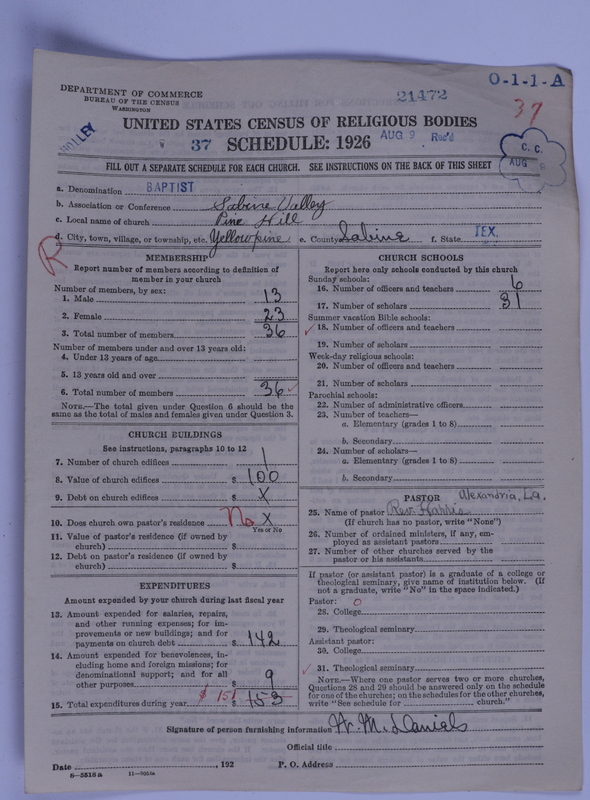 O-1-1-A
DEPARTMENT OF COMMERCE
BUREAU OF THE CENSUS
WASHINGTON
21472
37
UNITED STATES CENSUS OF RELIGIOUS BODIES
37 SCHEDULE: 1926 AUG 9 Rec'd
C. C.
AUG
FILL OUT A SEPARATE SCHEDULE FOR EACH CHURCH. SEE INSTRUCTIONS ON THE BACK OF THIS SHEET
a. Denomination BAPTIST
b. Association or Conference Sabine Valley
c. Local name of church Pine Hill
d. City, town, village, or township, etc. Yellowpine e. County Sabine f. State TEX.
R
MEMBERSHIP
Report number of members according to definition of
member in your church
Number of members, by sex:
1. Male 13
2. Female 23
3. Total number of members 36
Number of members under and over 13 years old:
4. Under 13 years of age
5. 13 years old and over
6. Total number of members 36
NOTE.—The total given under Question 6 should be the
same as the total of males and females given under Question 3.
CHURCH BUILDINGS
See instructions, paragraphs 10 to 12
7. Number of church edifices 1
8. Value of church edifices $ 100
9. Debt on church edifices $ X
10. Does church own pastor's residence No X
Yes or No
11. Value of pastor's residence (if owned by
church) $
12. Debt on pastor's residence (if owned by
church) $
EXPENDITURES
Amount expended by your church during last fiscal year
13. Amount expended for salaries, repairs,
and other running expenses; for im-
provements or new buildings; and for
payments on church debt $ 142
14. Amount expended for benevolences, in-
cluding home and foreign missions; for
denominational support; and for all
other purposes $ 9
15. Total expenditures during year $ 151 $ 153
CHURCH SCHOOLS
Report here only schools conducted by this church
Sunday schools:
16. Number of officers and teachers 6
17. Number of scholars 31
Summer vacation Bible schools:
18. Number of officers and teachers
19. Number of scholars
Week-day religious schools:
20. Number of officers and teachers
21. Number of scholars
Parochial schools:
22. Number of administrative officers
23. Number of teachers—
a. Elementary (grades 1 to 8)
b. Secondary
24. Number of scholars—
a. Elementary (grades 1 to 8)
b. Secondary
PASTOR Alexandria, La.
25. Name of pastor Rev. Harris
(If church has no pastor, write "None")
26. Number of ordained ministers, if any, em-
ployed as assistant pastors
27. Number of other churches served by the
pastor or his assistants
If pastor (or assistant pastor) is a graduate of a college or
theological seminary, give name of institution below. (If
not a graduate, write "No" in the space indicated.)
Pastor: 0
28. College
29. Theological seminary
Assistant pastor:
30. College
31. Theological seminary
NOTE.—Where one pastor serves two or more churches,
Questions 28 and 29 should be answered only on the schedule
for one of the churches; on the schedules for the other churches,
write "See schedule for church."
Signature of person furnishing information W. M. Daniels
Official title
Date , 192 P. O. Address
8-5510a 11-9034a